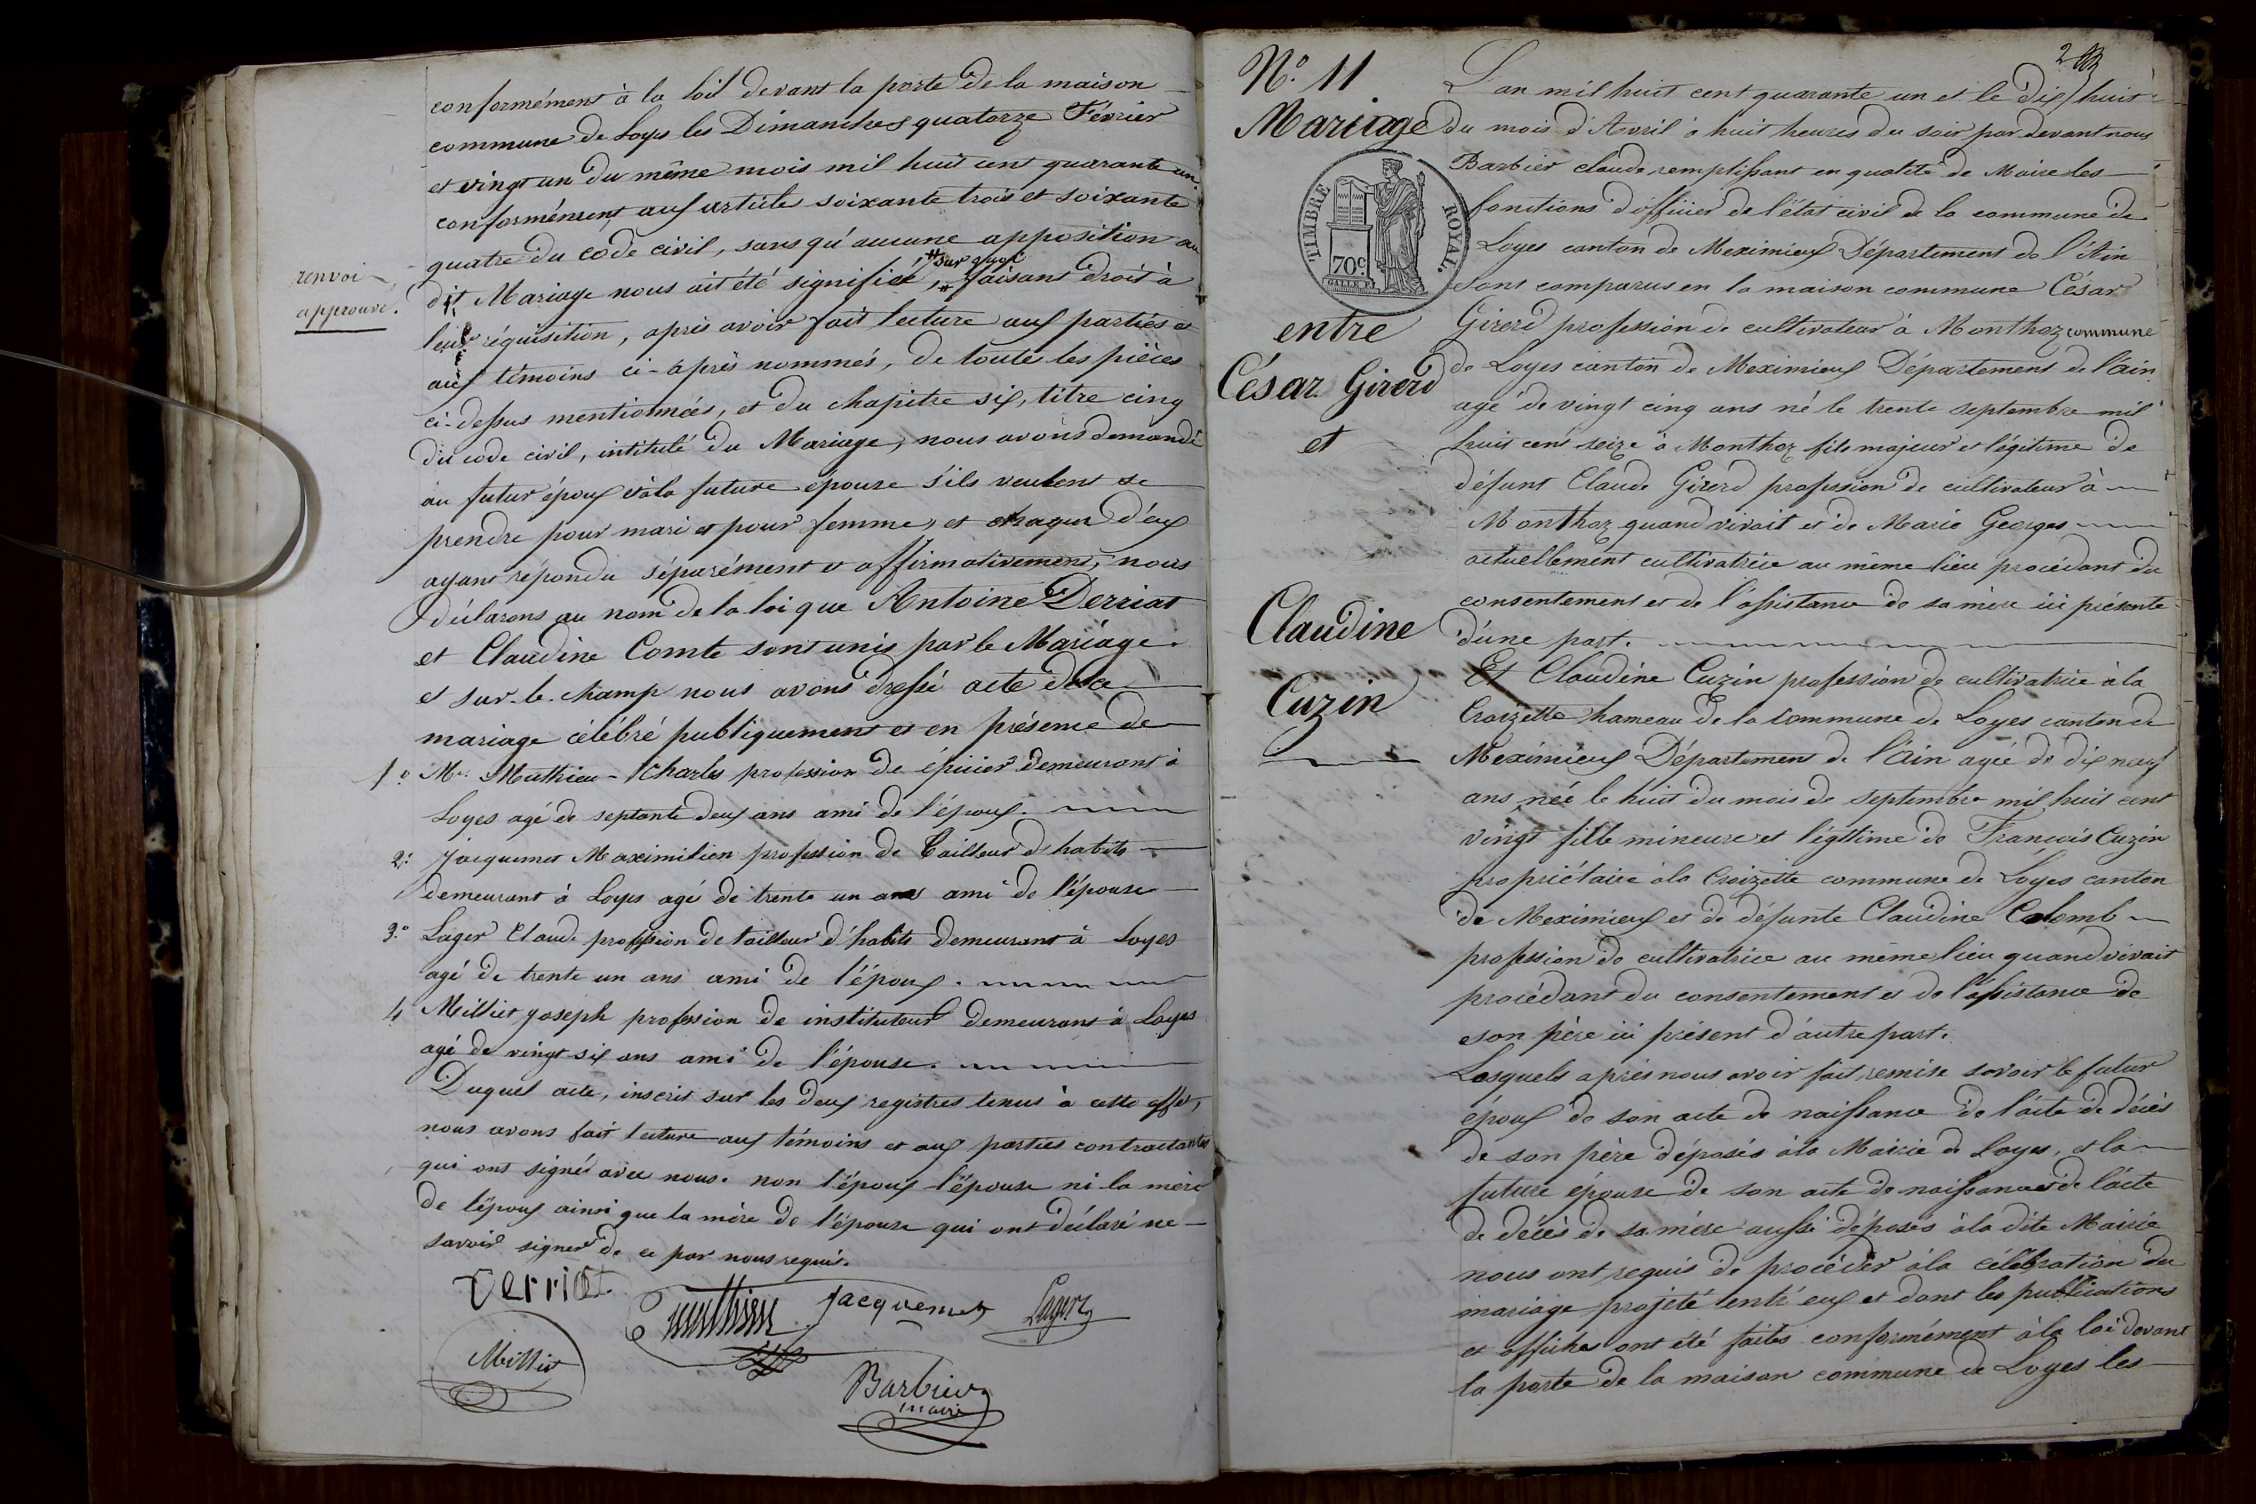 conformément à la loi devant la porte de la maison
commune de Loyes les Dimanches quatorze Février
et vingt un du même mois mil huit cent quarante un.
conformément aux articles soixante trois et soixante
quatre du code civil, sans qu'aucune opposition au
* sur quoi
renvoi
approuvé.
dit Mariage nous ait été signifiée, * faisant droit à
leur réquisition, après avoir fait lecture aux parties et
aux témoins ci-après nommés, de toutes les pièces
ci-dessus mentionnées, et du chapitre six, titre cinq
du code civil, intitulé du Mariage, nous avons demandé
au futur époux et à la future épouse s'ils veulent se
prendre pour mari et pour femme, et chaqun d'eux
ayant répondu séparément et affirmativement, nous
déclarons au nom de la loi que Antoine Derriat
et Claudine Comte sont unis par le Mariage.
et sur-le-champ nous avons dressé acte de ce
mariage célébré publiquement et en présence de
1º Mr. Mathieu-Charles profession de épicier demeurant à
Loyes agé de septante deux ans ami de l'époux.
2º Jacquemet Maximilien profession de Tailleur d'habits
demeurant à Loyes agé de trente un ans ami de l'épouse
3º Lager Claude profession de tailleur d'habits demeurant à Loyes
agé de trente un ans ami de l'époux.
4 Milliet Joseph profession de instituteur demeurant à Loyes
agé de vingt six ans ami de l'épouse.
Duquel acte, inscrit sur les deux registres tenus à cette effet,
nous avons fait lecture aux témoins et aux parties contractantes
qui ont signés avec nous. non l'époux l'épouse ni la mère
de l'époux ainsi que la mère de l'épouse qui ont déclaré ne
savoir signer de ce par nous requis.
Derriat
Mathieu
Jacquemet
Lager
Milliet
Barbier
maire
Nº. 11
Mariage
TIMBRE ROYAL.
70c
entre
César Girerd
et
Claudine
Cuzin
L'an mil huit cent quarante un et le dix huit
du mois d'Avril à huit heures du soir par devant nous
Barbier claude remplissant en qualité de Maire les
fonctions d'officier de l'état civil de la commune de
Loyes canton de Meximieux Département de l'Ain
sont comparus en la maison commune César
Girerd profession de cultivateur à Monthoz commune
de Loyes canton de Meximieux Département de l'ain
agé de vingt cinq ans né le trente septembre mil
huit cent seize à Monthoz fils majeur et légitime de
défunt Claude Girerd profession de cultivateur à
Monthoz quand vivait et de Marie Georges
actuellement cultivatrice au même lieu procédant du
consentement et de l'assistance de sa mère ici présente
d'une part.
Et Claudine Cuzin profession de cultivatrice à la
Croizette hameau de la commune de Loyes canton de
Meximieux Département de l'Ain agée de dix neuf
ans née le huit du mois de septembre mil huit cent
vingt fille mineure et légitime de François Cuzin
propriétaire à la Croizette commune de Loyes canton
de Meximieux et de défunte Claudine Colomb
profession de cultivatrice au même lieu quand vivait
procédant du consentement et de l'assistance de
son père ici présent d'autre part.
Lesquels après nous avoir fait remise savoir le futur
époux de son acte de naissance de l'acte de décès
de son père déposés à la Mairie de Loyes, et la
future épouse de son acte de naissance et de l'acte
de décès de sa mère aussi déposés à la dite Mairie
nous ont requis de procéder à la célébration du
mariage projeté entr'eux et dont les publications
et affiches ont été faites conformément à la loi devant
la porte de la maison commune de Loyes les